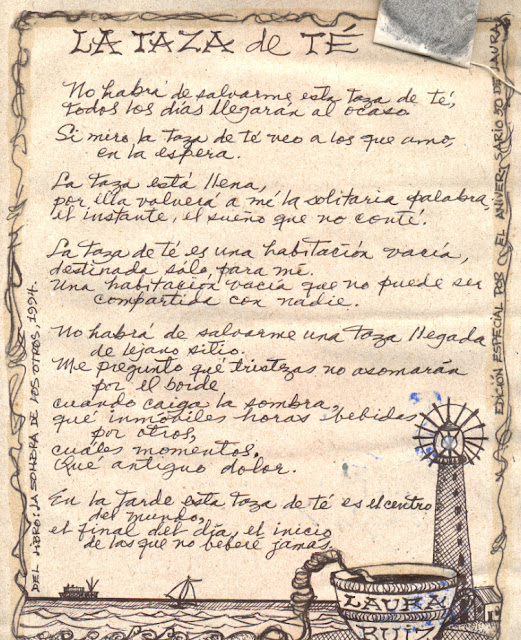 LA TAZA de TÉ
No habrá de salvarme esta taza de té,
todos los días llegarán al ocaso.
Si miro la taza de té veo a los que amo,
en la espera.
La taza está llena,
por ella volverá a mí la solitaria palabra,
el instante, el sueño que no conté.
La taza de té es una habitación vacía,
destinada sólo para mí.
Una habitación vacía que no puede ser
compartida con nadie.
No habrá de salvarme una taza llegada
de lejano sitio.
Me pregunto qué tristezas no asomarán
por el borde
cuando caiga la sombra,
qué inmóviles horas bebidas
por otros,
cuáles momentos.
Qué antiguo dolor.
En la tarde esta taza de té es el centro
del mundo,
el final del día, el inicio
de las que no beberé jamás.
DEL LIBRO: LA SOMBRA DE LOS OTROS, 1994.
EDICIÓN ESPECIAL POR EL ANIVERSARIO 50 DE LAURA
LAURA
RUIZ